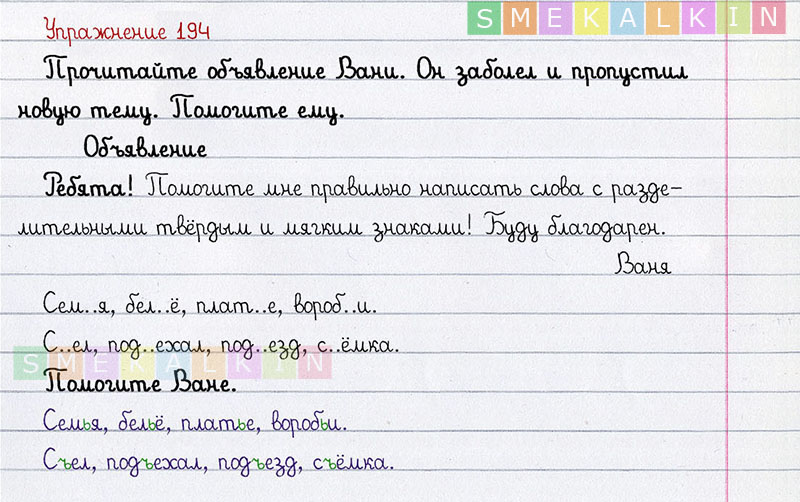 SMEKALKIN
Упражнение 194
Прочитайте объявление Вани. Он заболел и пропустил
новую тему. Помогите ему.
Объявление
Ребята! Помогите мне правильно написать слова с разде-
лительными твёрдым и мягким знаками! Буду благодарен.
Ваня
Сем..я, бел..ё, плат..е, вороб..и.
С..ел, под..ехал, под..езд, с..ёмка.
SMEKALKIN
Помогите Ване.
Семья, бельё, платье, воробьи.
Съел, подъехал, подъезд, съёмка.